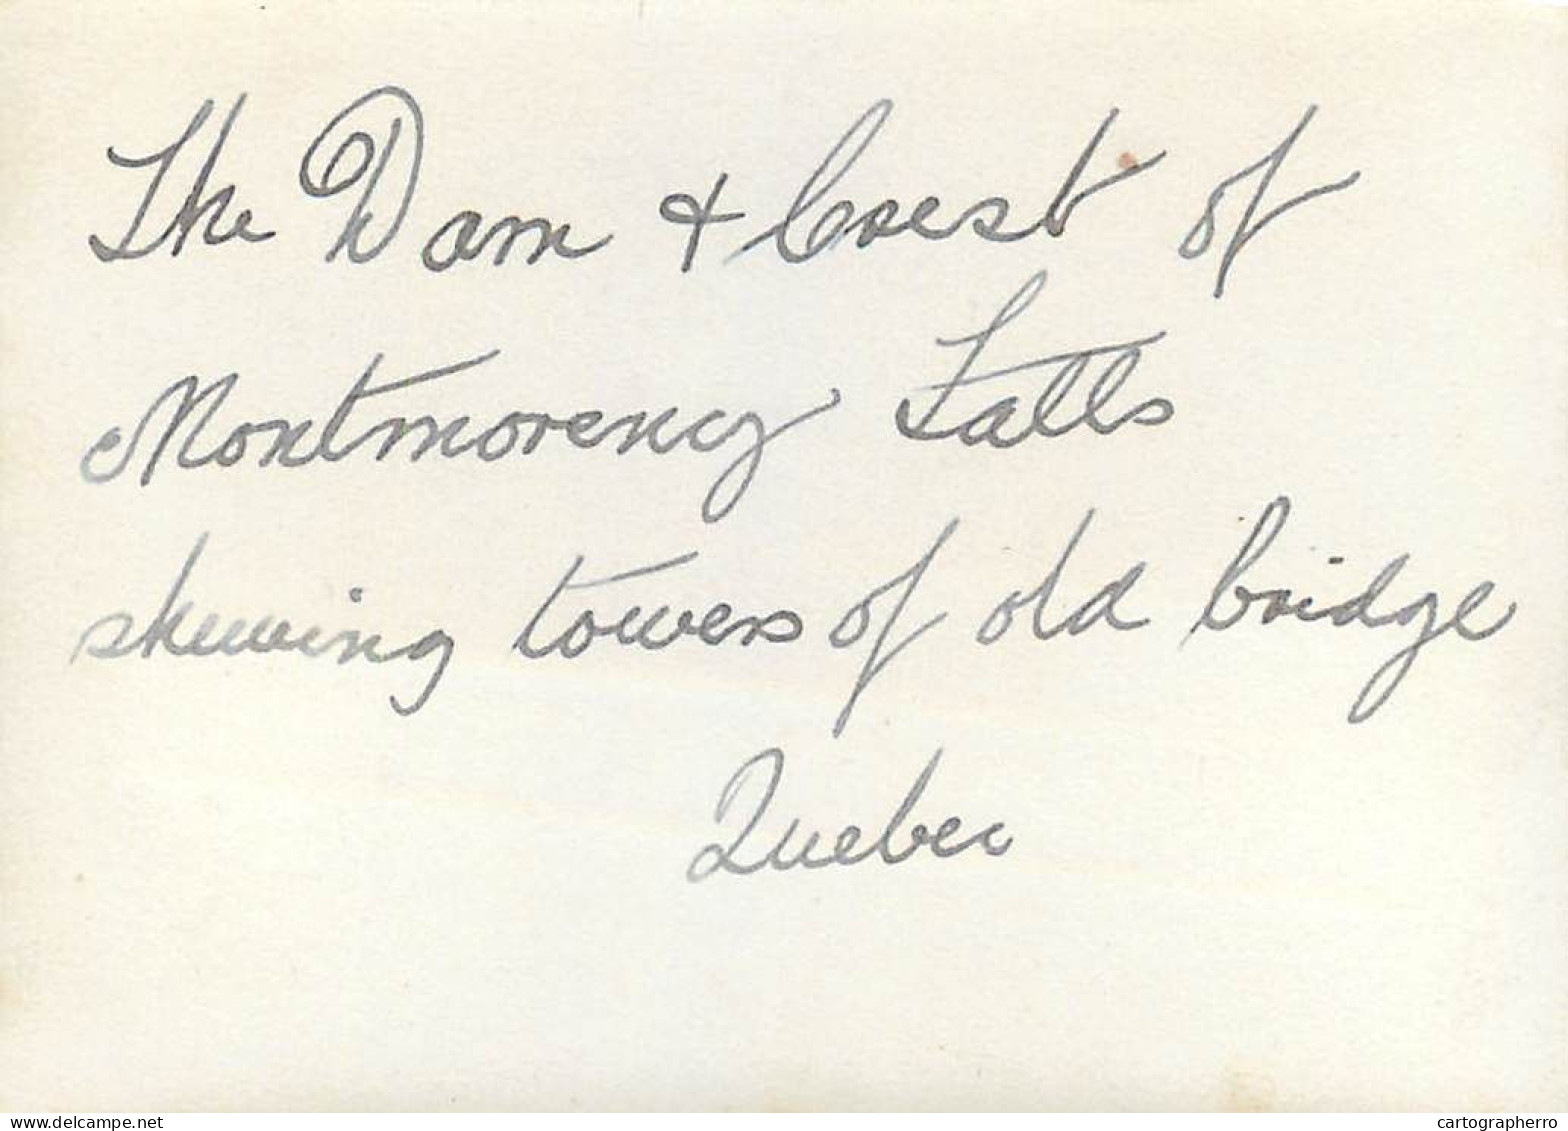 The Dam + Crest of
Montmorency Falls
shewing towers of old bridge
Quebec
delcampe.net
cartographerro